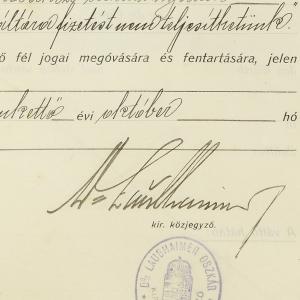 váltóra fizetést nem teljesíthetünk."
ő fél jogai megóvására és fentartására, jelen
évi október hó
Dr Laushaimer
kir. közjegyző.
DR LAUSHAIMER OSZKÁR